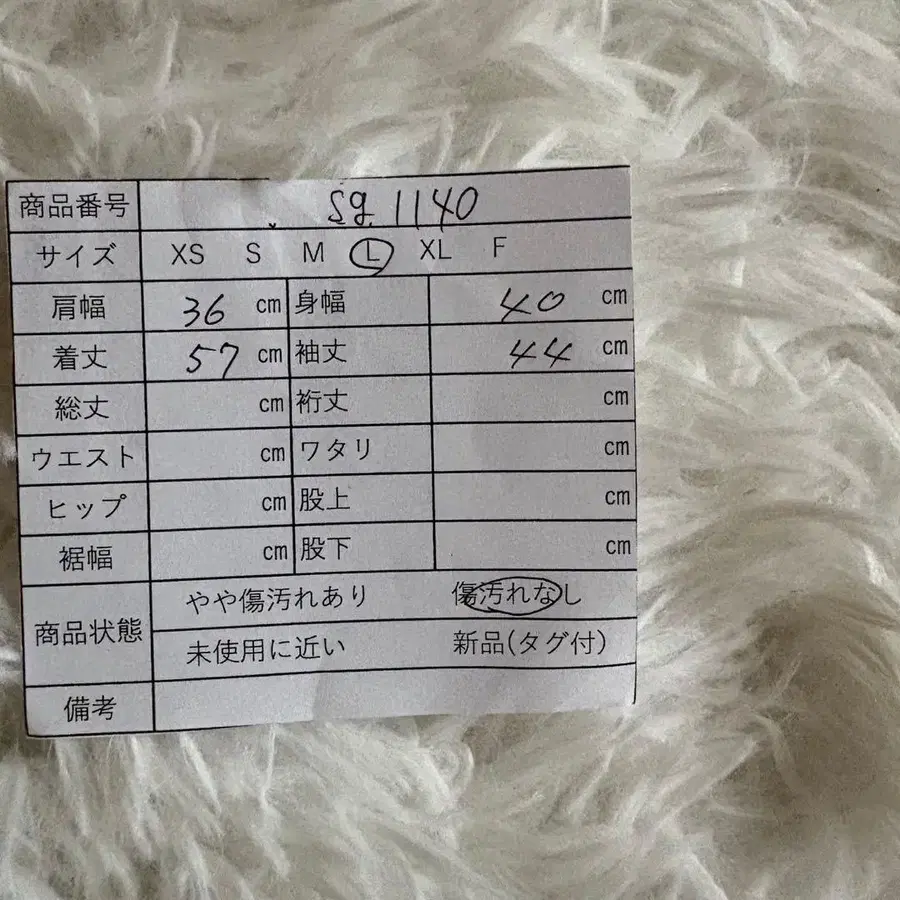 商品番号 sg 1140
サイズ XS S M L XL F
肩幅 36 cm 身幅 40 cm
着丈 57 cm 袖丈 44 cm
総丈 cm 裄丈 cm
ウエスト cm ワタリ cm
ヒップ cm 股上 cm
裾幅 cm 股下 cm
商品状態 やや傷汚れあり 傷汚れなし
未使用に近い 新品(タグ付)
備考